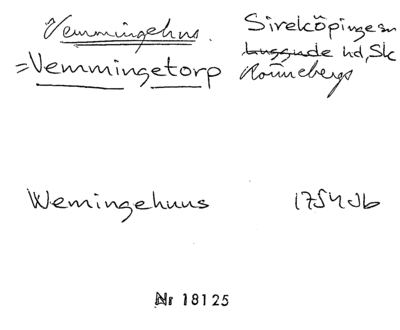 Vemmingehus. Sireköpinge sn
=Vemmingetorp Luggude hd, Sk
Rönnebergs
Wemingehuus 1754 Jb
Nr 18125